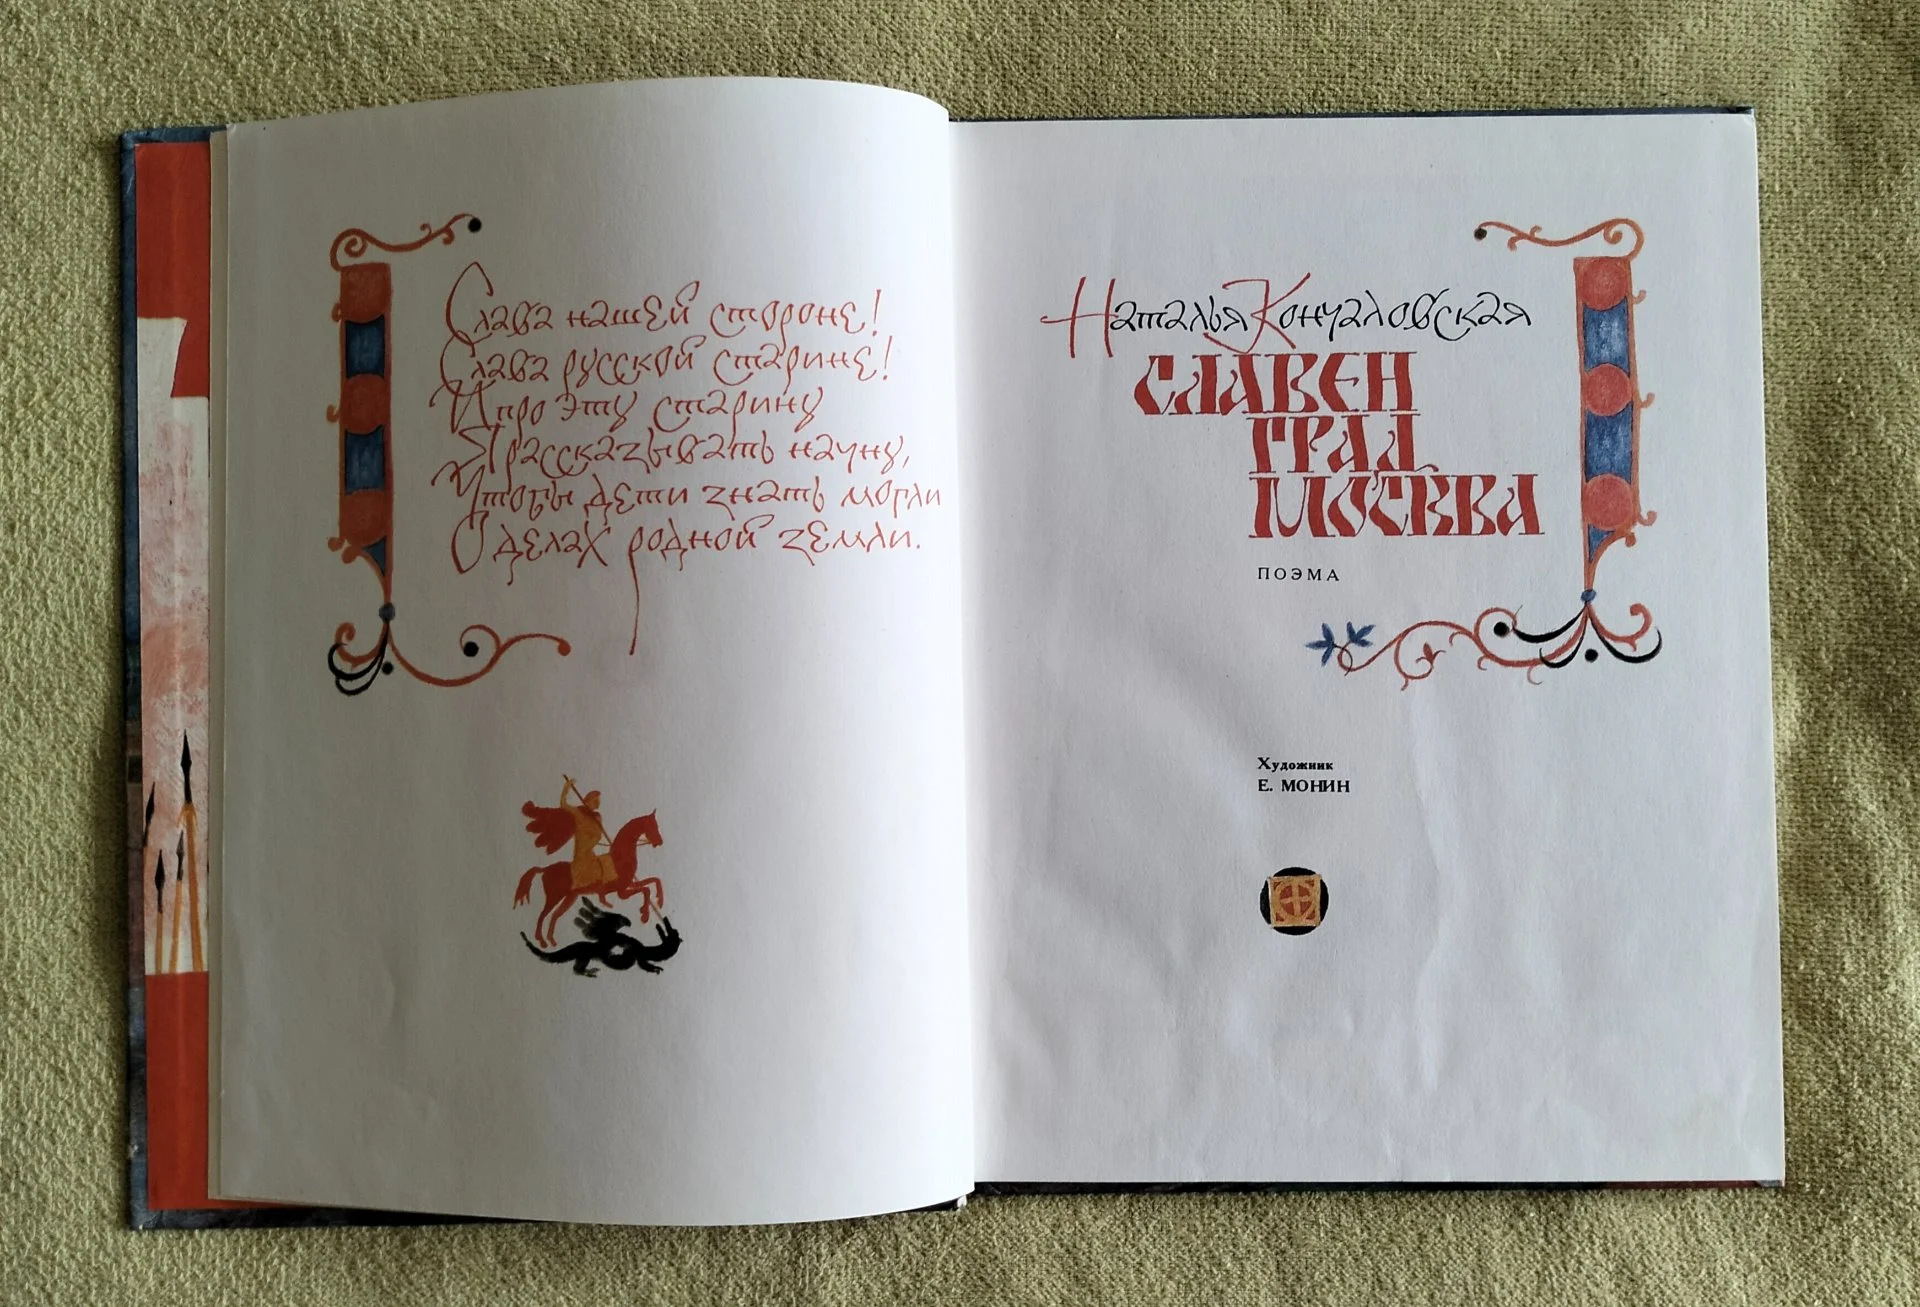 Слава нашей стороне!
Слава русской старине!
И про эту старину
Я рассказывать начну,
Чтобы дети знать могли
О делах родной земли.
Наталья Кончаловская
СЛАВЕН
ГРАД
МОСКВА
ПОЭМА
Художник
Е. МОНИН